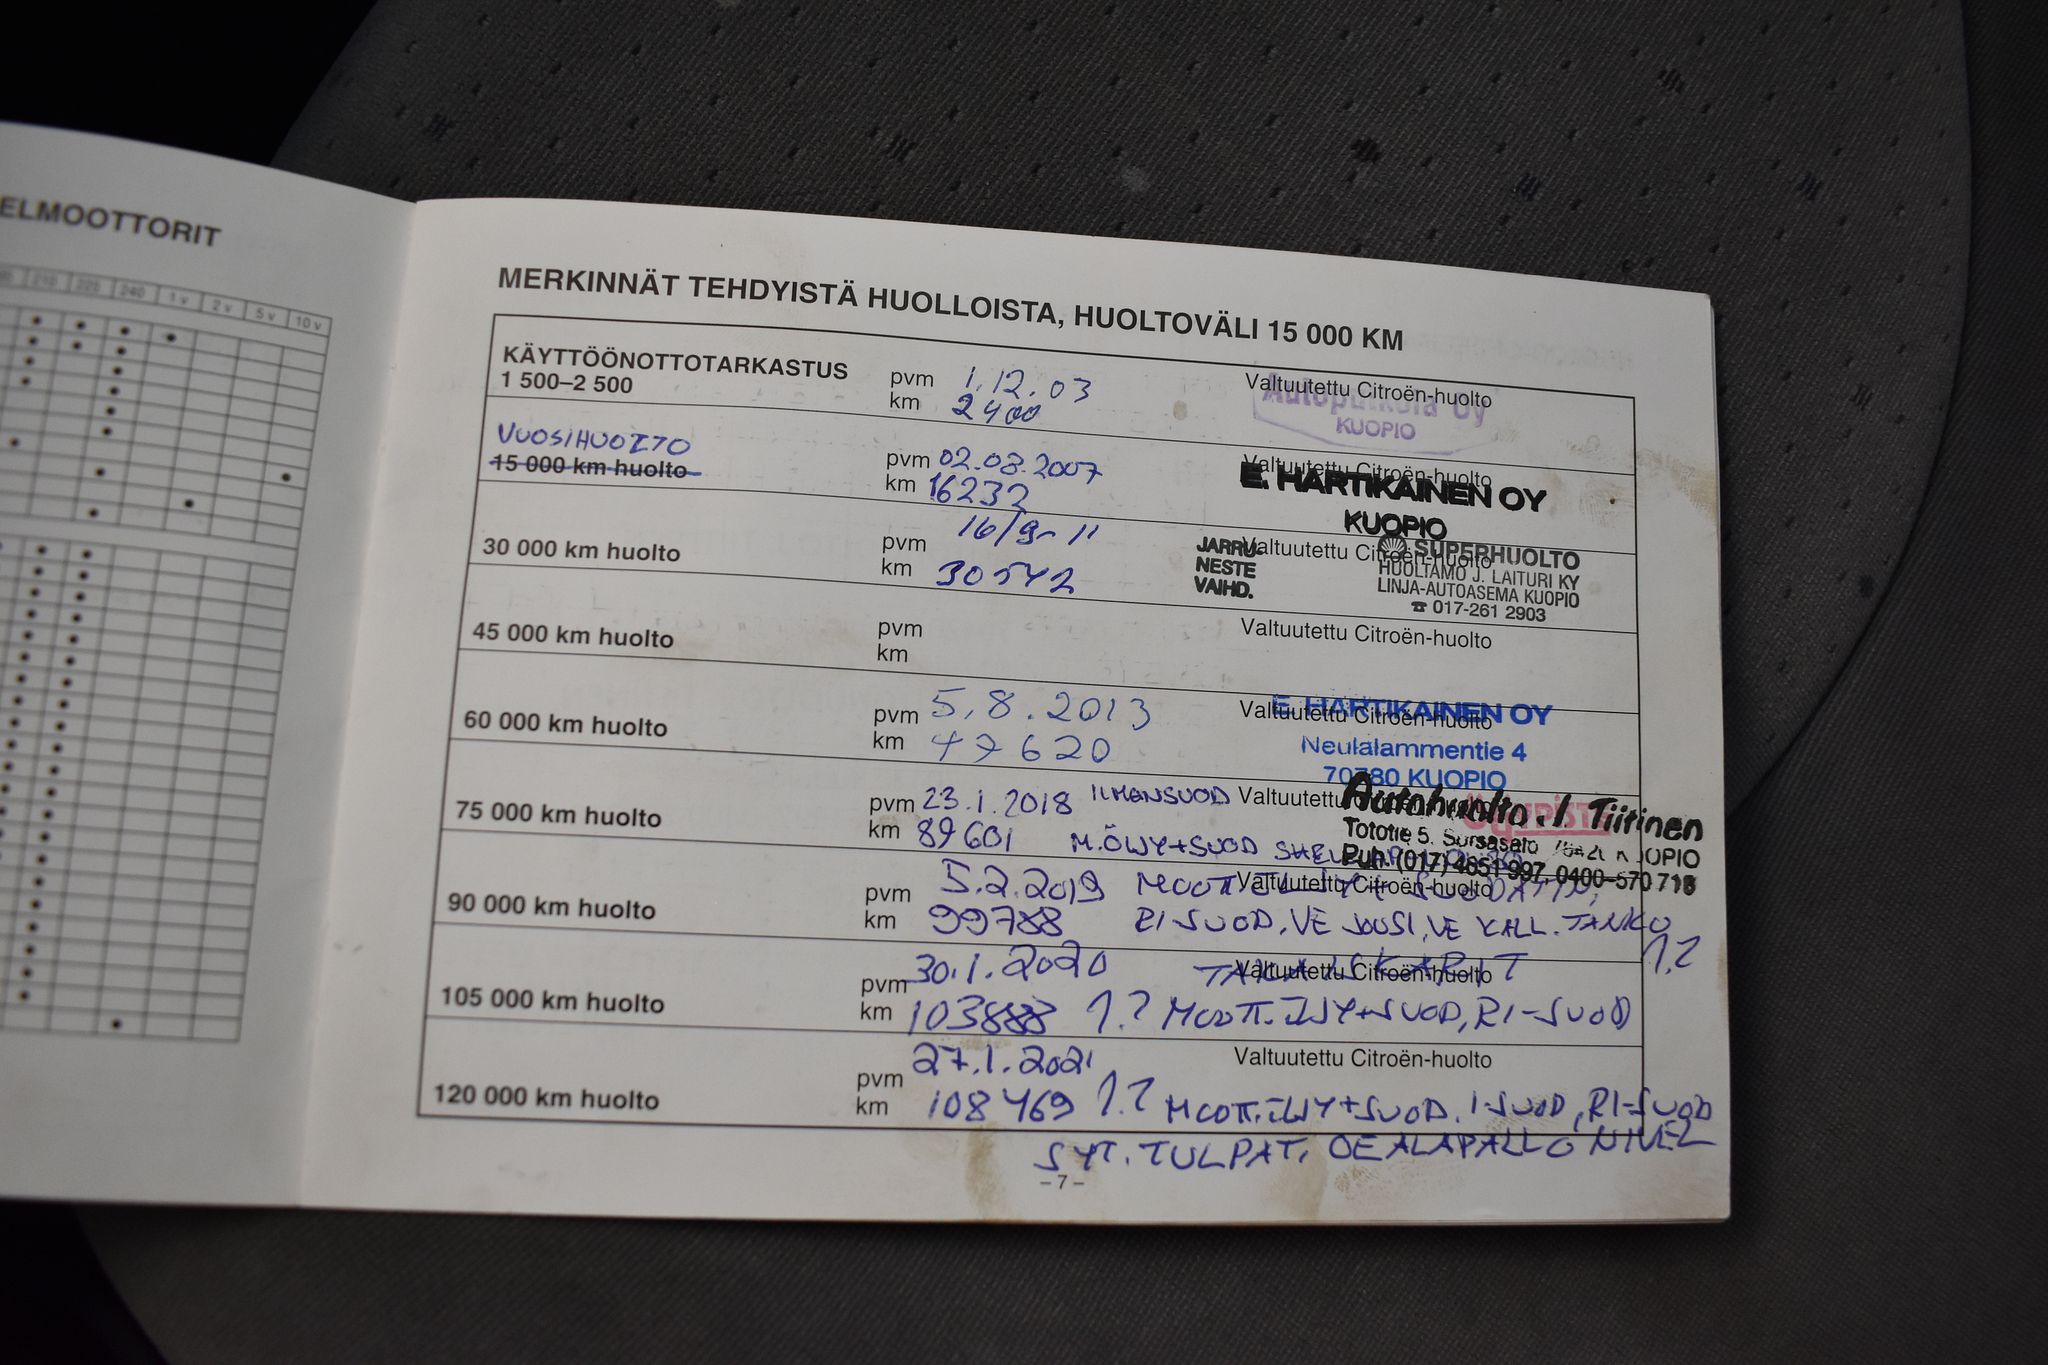 ELMOOTTORIT
210 225 240 1 v 2 v 5 v 10 v
MERKINNÄT TEHDYISTÄ HUOLLOISTA, HUOLTOVÄLI 15 000 KM
KÄYTTÖÖNOTTOTARKASTUS
1 500–2 500
pvm 1.12.03
km 2400
Valtuutettu Citroën-huolto
Oy
KUOPIO
VUOSIHUOLTO
15 000 km huolto
pvm 02.03.2007
km 16232
Valtuutettu Citroën-huolto
E. HARTIKAINEN OY
KUOPIO
30 000 km huolto
pvm 16/9-11
km 30542
JARRU-
NESTE
VAIHD.
Valtuutettu Citroën-huolto
SUPERHUOLTO
HUOLTAMO J. LAITURI KY
LINJA-AUTOASEMA KUOPIO
☎ 017-261 2903
45 000 km huolto
pvm
km
Valtuutettu Citroën-huolto
60 000 km huolto
pvm 5.8.2013
km 47620
Valtuutettu Citroën-huolto
E. HARTIKAINEN OY
Neulalammentie 4
70780 KUOPIO
75 000 km huolto
pvm 23.1.2018 ILMANSUOD
km 89601 M.ÖLJY+SUOD
Valtuutettu
Autohuolto J. Tiitinen
Totontie 5. Sorsasalo KUOPIO
Puh. (017) 4651 997, 0400-570 718
90 000 km huolto
pvm 5.2.2019
km 99788 RI-SUOD, VE JOUSI, VE KALL. TANKO
Valtuutettu Citroën-huolto
105 000 km huolto
pvm 30.1.2020
km 103888 MOOTT.ÖLJY+SUOD, RI-SUOD
Valtuutettu Citroën-huolto
120 000 km huolto
pvm 27.1.2021
km 108469 MOOTT.ÖLJY+SUOD. I-SUOD, RI-SUOD
SYT. TULPAT, OE ALAPALLO NIVEL
Valtuutettu Citroën-huolto
–7–